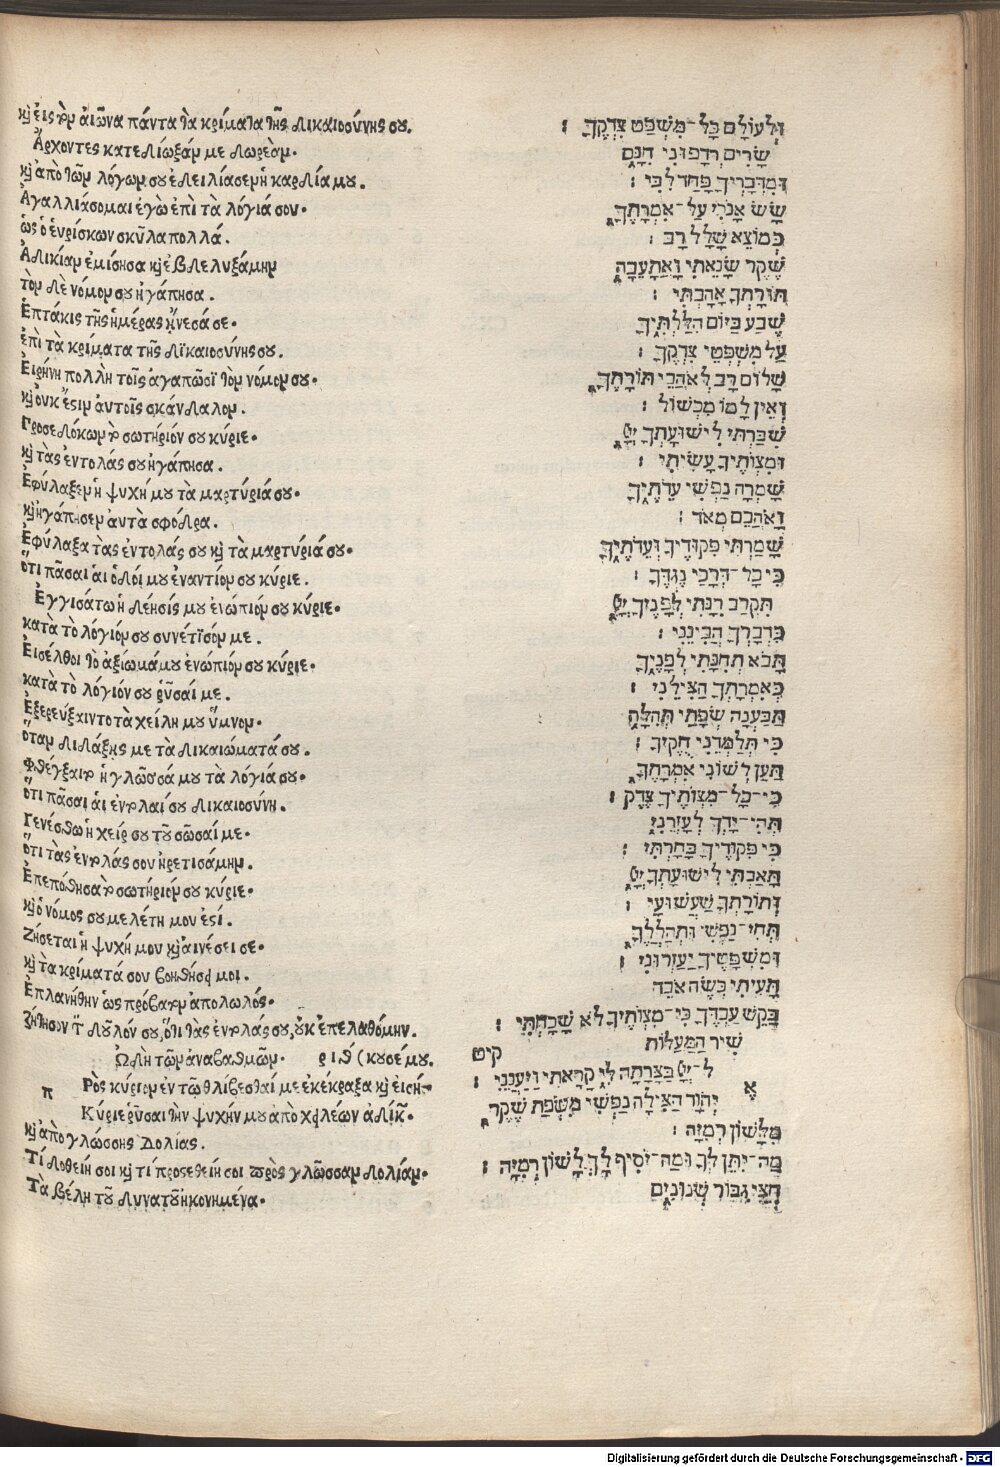 κỳ εἰς τὸν αἰῶνα πάντα τὰ κρίματα τῆς δικαιοσύνης σου.
Ἄρχοντες κατεδίωξάν με δωρεάν·
κỳ ἀπὸ τῶν λόγων σου ἐδειλίασεν ἡ καρδία μου.
Ἀγαλλιάσομαι ἐγὼ ἐπὶ τὰ λόγιά σου·
ὡς ὁ εὑρίσκων σκῦλα πολλά.
Ἀδικίαν ἐμίσησα κỳ ἐβδελυξάμην
τὸν δὲ νόμον σου ἠγάπησα.
Ἑπτάκις τῆς ἡμέρας ᾔνεσά σε·
ἐπὶ τὰ κρίματα τῆς δικαιοσύνης σου.
Εἰρήνη πολλὴ τοῖς ἀγαπῶσι τὸν νόμον σου·
κỳ οὐκ ἔστιν αὐτοῖς σκάνδαλον.
Προσεδόκων τὸ σωτήριόν σου κύριε·
κỳ τὰς ἐντολάς σου ἠγάπησα.
Ἐφύλαξεν ἡ ψυχή μου τὰ μαρτύριά σου·
κỳ ἠγάπησεν αὐτὰ σφόδρα.
Ἐφύλαξα τὰς ἐντολάς σου κỳ τὰ μαρτύριά σου·
ὅτι πᾶσαι αἱ ὁδοί μου ἐναντίον σου κύριε.
Ἐγγισάτω ἡ δέησίς μου ἐνώπιόν σου κύριε·
κατὰ τὸ λόγιόν σου συνέτισόν με.
Εἰσέλθοι τὸ ἀξίωμά μου ἐνώπιόν σου κύριε·
κατὰ τὸ λόγιόν σου ῥῦσαί με.
Ἐξερεύξαιντο τὰ χείλη μου ὕμνον·
ὅταν διδάξῃς με τὰ δικαιώματά σου.
Φθέγξαιτο ἡ γλῶσσά μου τὰ λόγιά σου·
ὅτι πᾶσαι αἱ ἐντολαί σου δικαιοσύνη.
Γενέσθω ἡ χείρ σου τοῦ σῶσαί με·
ὅτι τὰς ἐντολάς σου ᾑρετισάμην.
Ἐπεπόθησα τὸ σωτήριόν σου κύριε·
κỳ ὁ νόμος σου μελέτη μου ἐστί.
Ζήσεται ἡ ψυχή μου κỳ αἰνέσει σε·
κỳ τὰ κρίματά σου βοηθήσει μοι.
Ἐπλανήθην ὡς πρόβατον ἀπολωλός·
ζήτησον τὸν δοῦλόν σου, ὅτι τὰς ἐντολάς σου, οὐκ ἐπελαθόμην.
ᾨδὴ τῶν ἀναβαθμῶν· ριθ (κυσέμου.
π Ρὸς κύριον ἐν τῷ θλίβεσθαί με ἐκέκραξα κỳ εἰσή-
Κύριε ῥῦσαι τὴν ψυχήν μου ἀπὸ χειλέων ἀδίκων·
κỳ ἀπὸ γλώσσης δολίας.
Τί δοθείη σοι κỳ τί προσετεθείη σοι πρὸς γλῶσσαν δολίαν·
Τὰ βέλη τοῦ δυνατοῦ ἠκονημένα·
וּלְעוֹלָם כָּל־מִשְׁפַּט צִדְקֶךָ :
שָׂרִים רְדָפוּנִי חִנָּם
וּמִדְּבָרֶיךָ פָּחַד לִבִּי :
שָׂשׂ אָנֹכִי עַל־אִמְרָתֶךָ
כְּמוֹצֵא שָׁלָל רָב :
שֶׁקֶר שָׂנֵאתִי וָאֲתַעֵבָה
תּוֹרָתְךָ אָהָבְתִּי :
שֶׁבַע בַּיּוֹם הִלַּלְתִּיךָ
עַל מִשְׁפְּטֵי צִדְקֶךָ :
שָׁלוֹם רָב לְאֹהֲבֵי תוֹרָתֶךָ
וְאֵין לָמוֹ מִכְשׁוֹל :
שִׂבַּרְתִּי לִישׁוּעָתְךָ יְיָ
וּמִצְוֹתֶיךָ עָשִׂיתִי :
שָׁמְרָה נַפְשִׁי עֵדֹתֶיךָ
וָאֹהֲבֵם מְאֹד :
שָׁמַרְתִּי פִקּוּדֶיךָ וְעֵדֹתֶיךָ
כִּי כָל־דְּרָכַי נֶגְדֶּךָ :
תִּקְרַב רִנָּתִי לְפָנֶיךָ יְיָ
כִּדְבָרְךָ הֲבִינֵנִי :
תָּבֹא תְחִנָּתִי לְפָנֶיךָ
כְּאִמְרָתְךָ הַצִּילֵנִי :
תַּבַּעְנָה שְׂפָתַי תְּהִלָּה
כִּי תְלַמְּדֵנִי חֻקֶּיךָ :
תַּעַן לְשׁוֹנִי אִמְרָתֶךָ
כִּי־כָל־מִצְוֹתֶיךָ צֶּדֶק :
תְּהִי־יָדְךָ לְעָזְרֵנִי
כִּי פִקּוּדֶיךָ בָחָרְתִּי :
תָּאַבְתִּי לִישׁוּעָתְךָ יְיָ
וְתוֹרָתְךָ שַׁעֲשֻׁעָי :
תְּחִי־נַפְשִׁי וּתְהַלְלֶךָּ
וּמִשְׁפָּטֶיךָ יַעְזְרוּנִי :
תָּעִיתִי כְּשֶׂה אֹבֵד
בַּקֵּשׁ עַבְדֶּךָ כִּי־מִצְוֹתֶיךָ לֹא שָׁכָחְתִּי :
שִׁיר הַמַּעֲלוֹת קיט
א ל־יְיָ בַּצָּרָתָה לִּי קָרָאתִי וַיַּעֲנֵנִי :
יְהֹוָה הַצִּילָה נַפְשִׁי מִשְּׂפַת שֶׁקֶר
מִלָּשׁוֹן רְמִיָּה :
מַה־יִּתֵּן לְךָ וּמַה־יֹּסִיף לָךְ לָשׁוֹן רְמִיָּה :
חִצֵּי גִבּוֹר שְׁנוּנִים
Digitalisierung gefördert durch die Deutsche Forschungsgemeinschaft - DFG